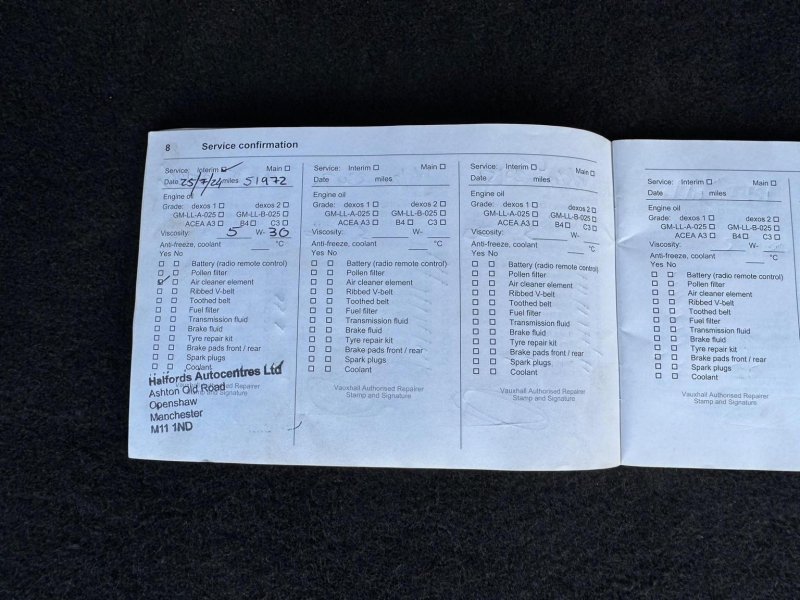 8 Service confirmation
Service: Interim Main
Date 25/7/24 miles 51972
Engine oil
Grade: dexos 1 dexos 2
GM-LL-A-025 GM-LL-B-025
ACEA A3 B4 C3
Viscosity: 5 W- 30
Anti-freeze, coolant °C
Yes No
Battery (radio remote control)
Pollen filter
Air cleaner element
Ribbed V-belt
Toothed belt
Fuel filter
Transmission fluid
Brake fluid
Tyre repair kit
Brake pads front / rear
Spark plugs
Coolant
Vauxhall Authorised Repairer
Stamp and Signature
Halfords Autocentres Ltd
Ashton Old Road
Openshaw
Manchester
M11 1ND
Service: Interim Main
Date miles
Engine oil
Grade: dexos 1 dexos 2
GM-LL-A-025 GM-LL-B-025
ACEA A3 B4 C3
Viscosity: W-
Anti-freeze, coolant °C
Yes No
Battery (radio remote control)
Pollen filter
Air cleaner element
Ribbed V-belt
Toothed belt
Fuel filter
Transmission fluid
Brake fluid
Tyre repair kit
Brake pads front / rear
Spark plugs
Coolant
Vauxhall Authorised Repairer
Stamp and Signature
Service: Interim Main
Date miles
Engine oil
Grade: dexos 1 dexos 2
GM-LL-A-025 GM-LL-B-025
ACEA A3 B4 C3
Viscosity: W-
Anti-freeze, coolant °C
Yes No
Battery (radio remote control)
Pollen filter
Air cleaner element
Ribbed V-belt
Toothed belt
Fuel filter
Transmission fluid
Brake fluid
Tyre repair kit
Brake pads front / rear
Spark plugs
Coolant
Vauxhall Authorised Repairer
Stamp and Signature
Service: Interim Main
Date miles
Engine oil
Grade: dexos 1 dexos 2
GM-LL-A-025 GM-LL-B-025
ACEA A3 B4 C3
Viscosity: W-
Anti-freeze, coolant °C
Yes No
Battery (radio remote control)
Pollen filter
Air cleaner element
Ribbed V-belt
Toothed belt
Fuel filter
Transmission fluid
Brake fluid
Tyre repair kit
Brake pads front / rear
Spark plugs
Coolant
Vauxhall Authorised Repairer
Stamp and Signature